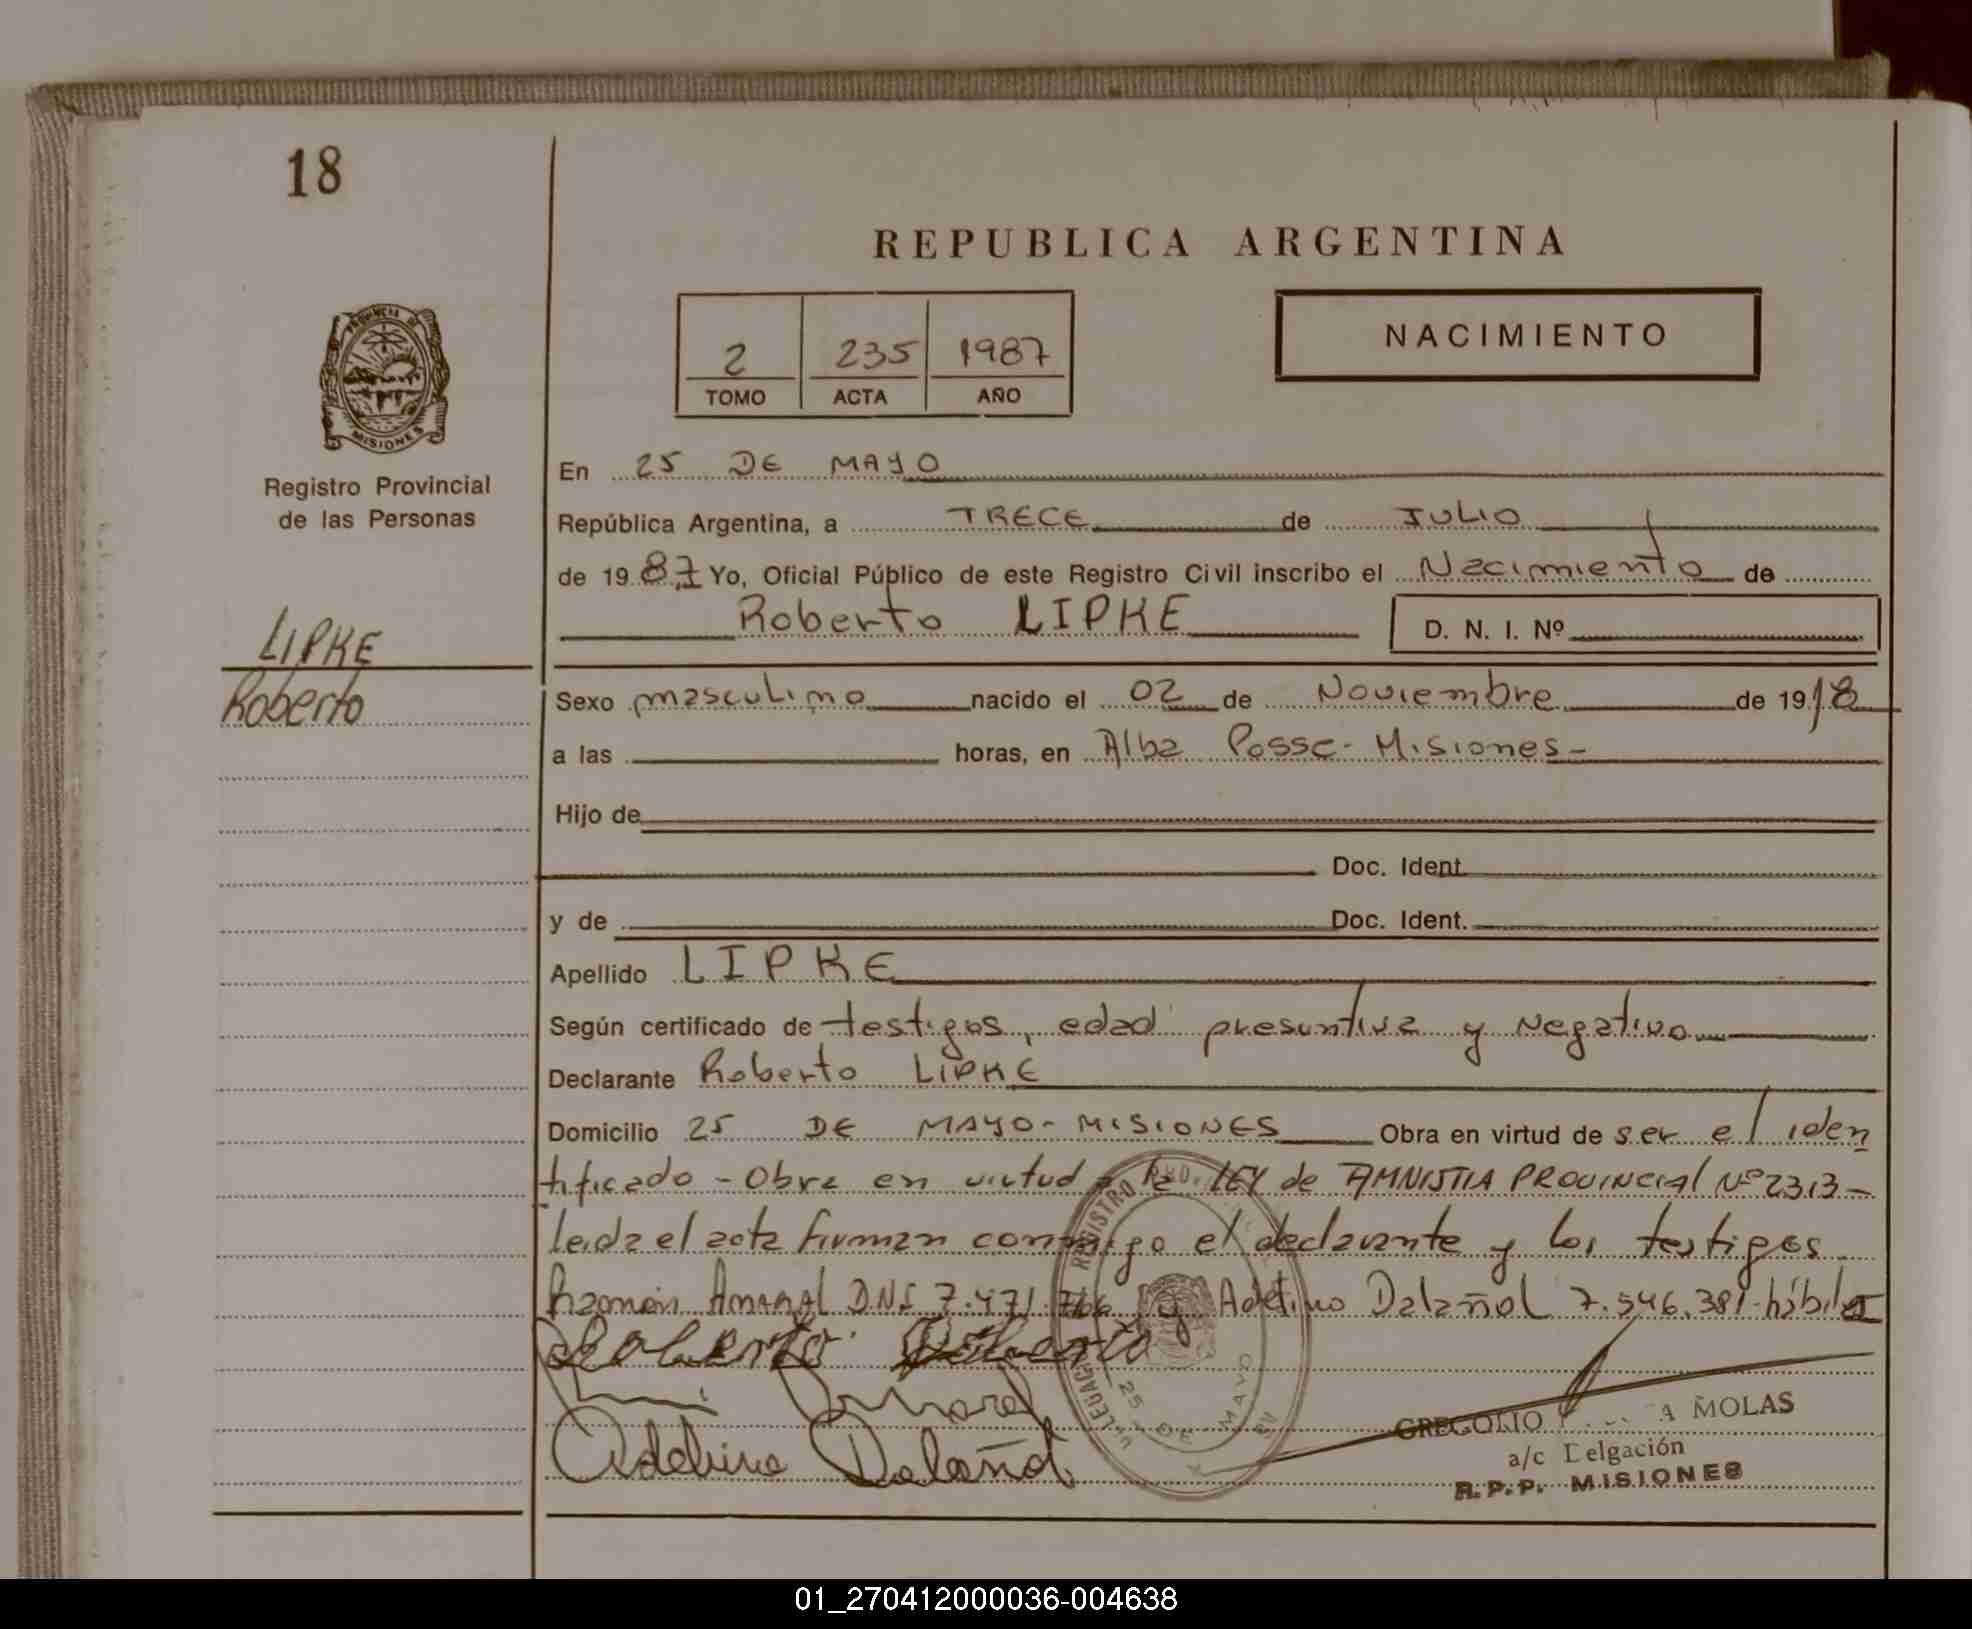 18
REPUBLICA ARGENTINA
2 235 1987
TOMO ACTA AÑO
NACIMIENTO
PROVINCIA DE
MISIONES
Registro Provincial
de las Personas
LIPKE
Roberto
En 25 DE MAYO
República Argentina, a TRECE de JULIO
de 1987 Yo, Oficial Público de este Registro Civil inscribo el Nacimiento de
Roberto LIPKE D. N. I. Nº
Sexo masculino nacido el 02 de Noviembre de 1918
a las horas, en Alba Posse - Misiones -
Hijo de
Doc. Ident.
y de Doc. Ident.
Apellido LIPKE
Según certificado de testigos, edad presuntiva y Negativo
Declarante Roberto LIPKE
Domicilio 25 DE MAYO - MISIONES Obra en virtud de ser el iden
tificado - Obra en virtud a la LEY de AMNISTIA PROVINCIAL Nº 2313 -
leida el acta firman conmigo el declarante y los testigos
Ramón AMARAL DNI 7.471.766 y Adelino Dalañol 7.546.381 hábiles
Roberto
Amaral
Adelino Dalañol
REGISTRO
25 DE MAYO
GREGORIO MOLAS
a/c Delgación
R.P.P. MISIONES
01_270412000036-004638